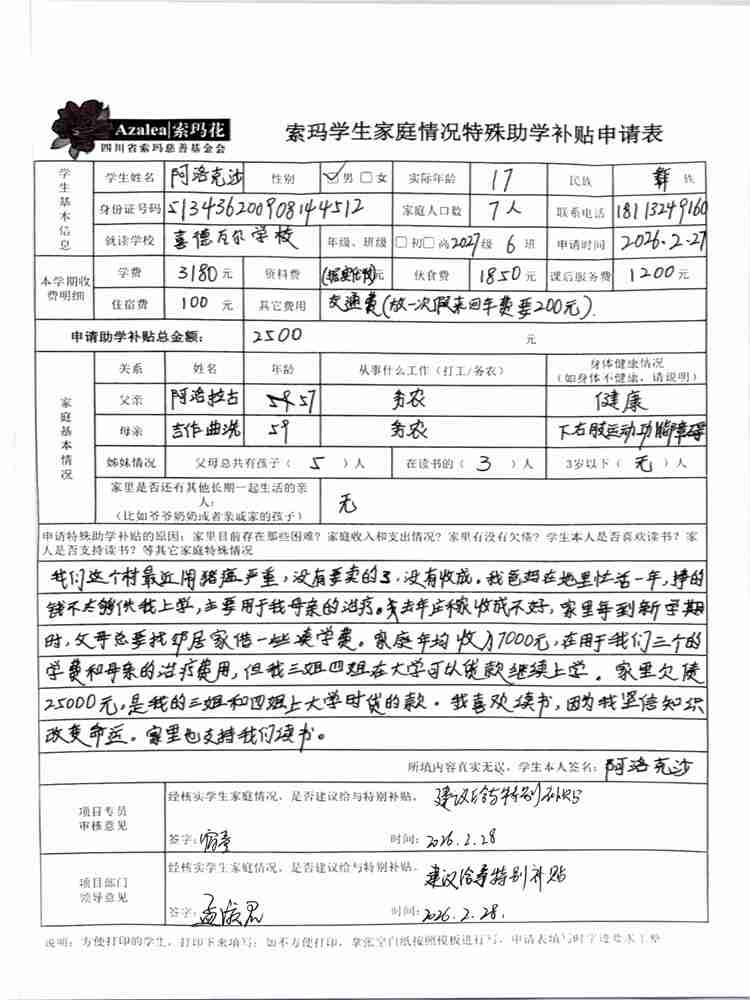 Azalea|索玛花
四川省索玛慈善基金会
索玛学生家庭情况特殊助学补贴申请表
学生基本信息
学生姓名 阿洛克沙 性别 ☑男 □女 实际年龄 17 民族 彝 族
身份证号码 513436200908144512 家庭人口数 7人 联系电话 18113249160
就读学校 喜德瓦尔学校 年级、班级 □初□高2027级 6 班 申请时间 2026.2.27
本学期收费明细
学费 3180 元 资料费 元 伙食费 1850 元 课后服务费 1200 元
住宿费 100 元 其它费用 交通费(放一次假来回车费要200元).
申请助学补贴总金额: 2500 元
家庭基本情况
关系 姓名 年龄 从事什么工作(打工/务农) 身体健康情况(如身体不健康,请说明)
父亲 阿洛拉古 57 务农 健康
母亲 吉作曲洗 59 务农 下右肢运动功能障碍
姊妹情况 父母总共有孩子( 5 )人 在读书的( 3 )人 3岁以下( 无 )人
家里是否还有其他长期一起生活的亲人:
(比如爷爷奶奶或者亲戚家的孩子) 无
申请特殊助学补贴的原因:家里目前存在那些困难?家庭收入和支出情况?家里有没有欠债?学生本人是否喜欢读书?家
人是否支持读书?等其它家庭特殊情况
我们这个村最近闹猪瘟严重,没有要卖的了.没有收成。我爸妈在地里忙活一年,挣的
钱不太够供我上学,主要用于我母亲的治疗。去年庄稼收成不好,家里每到新学期
时,父母总要找邻居家借一些凑学费。家庭年均收入7000元,在用于我们三个的
学费和母亲的治疗费用,但我三姐四姐在大学可以贷款继续上学。家里欠债
25000元,是我的三姐和四姐上大学时贷的款。我喜欢读书,因为我坚信知识
改变命运。家里也支持我们读书。
所填内容真实无误,学生本人签名: 阿洛克沙
项目专员审核意见
经核实学生家庭情况,是否建议给与特别补贴。 建议给与特别补贴
签字: 时间: 2026.2.28
项目部门领导意见
经核实学生家庭情况,是否建议给与特别补贴。 建议给予特别补贴
签字: 时间: 2026.2.28.
说明:方便打印的学生,打印下来填写;如不方便打印,拿张空白纸按照模板进行写,申请表填写时字迹要求工整